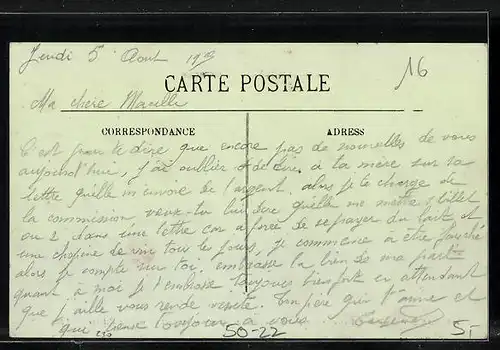 Jeudi 5 Aout 19
16
CARTE POSTALE
Ma chère Marcelle
CORRESPONDANCE
ADRESS
C'est pour te dire que encore pas de nouvelles de vous
aujourd'hui, j'ai oublier de dire à ta mère sur sa
lettre qu'elle m'envoie de l'argent, alors je te charge de
la commission veux-tu lui dire qu'elle me mette 1 billet
ou 2 dans une lettre car a force de se payer du lait et
une chopine de vin tous les jours, je commence à être fauché
alors je compte sur toi, embrasse la bien de ma part
quant à moi je t'embrasse toujours bien fort en attendant
que j'aille vous rendre visite. Ton père qui t'aime et
qui pense toujours à vous
230
50-22
5-